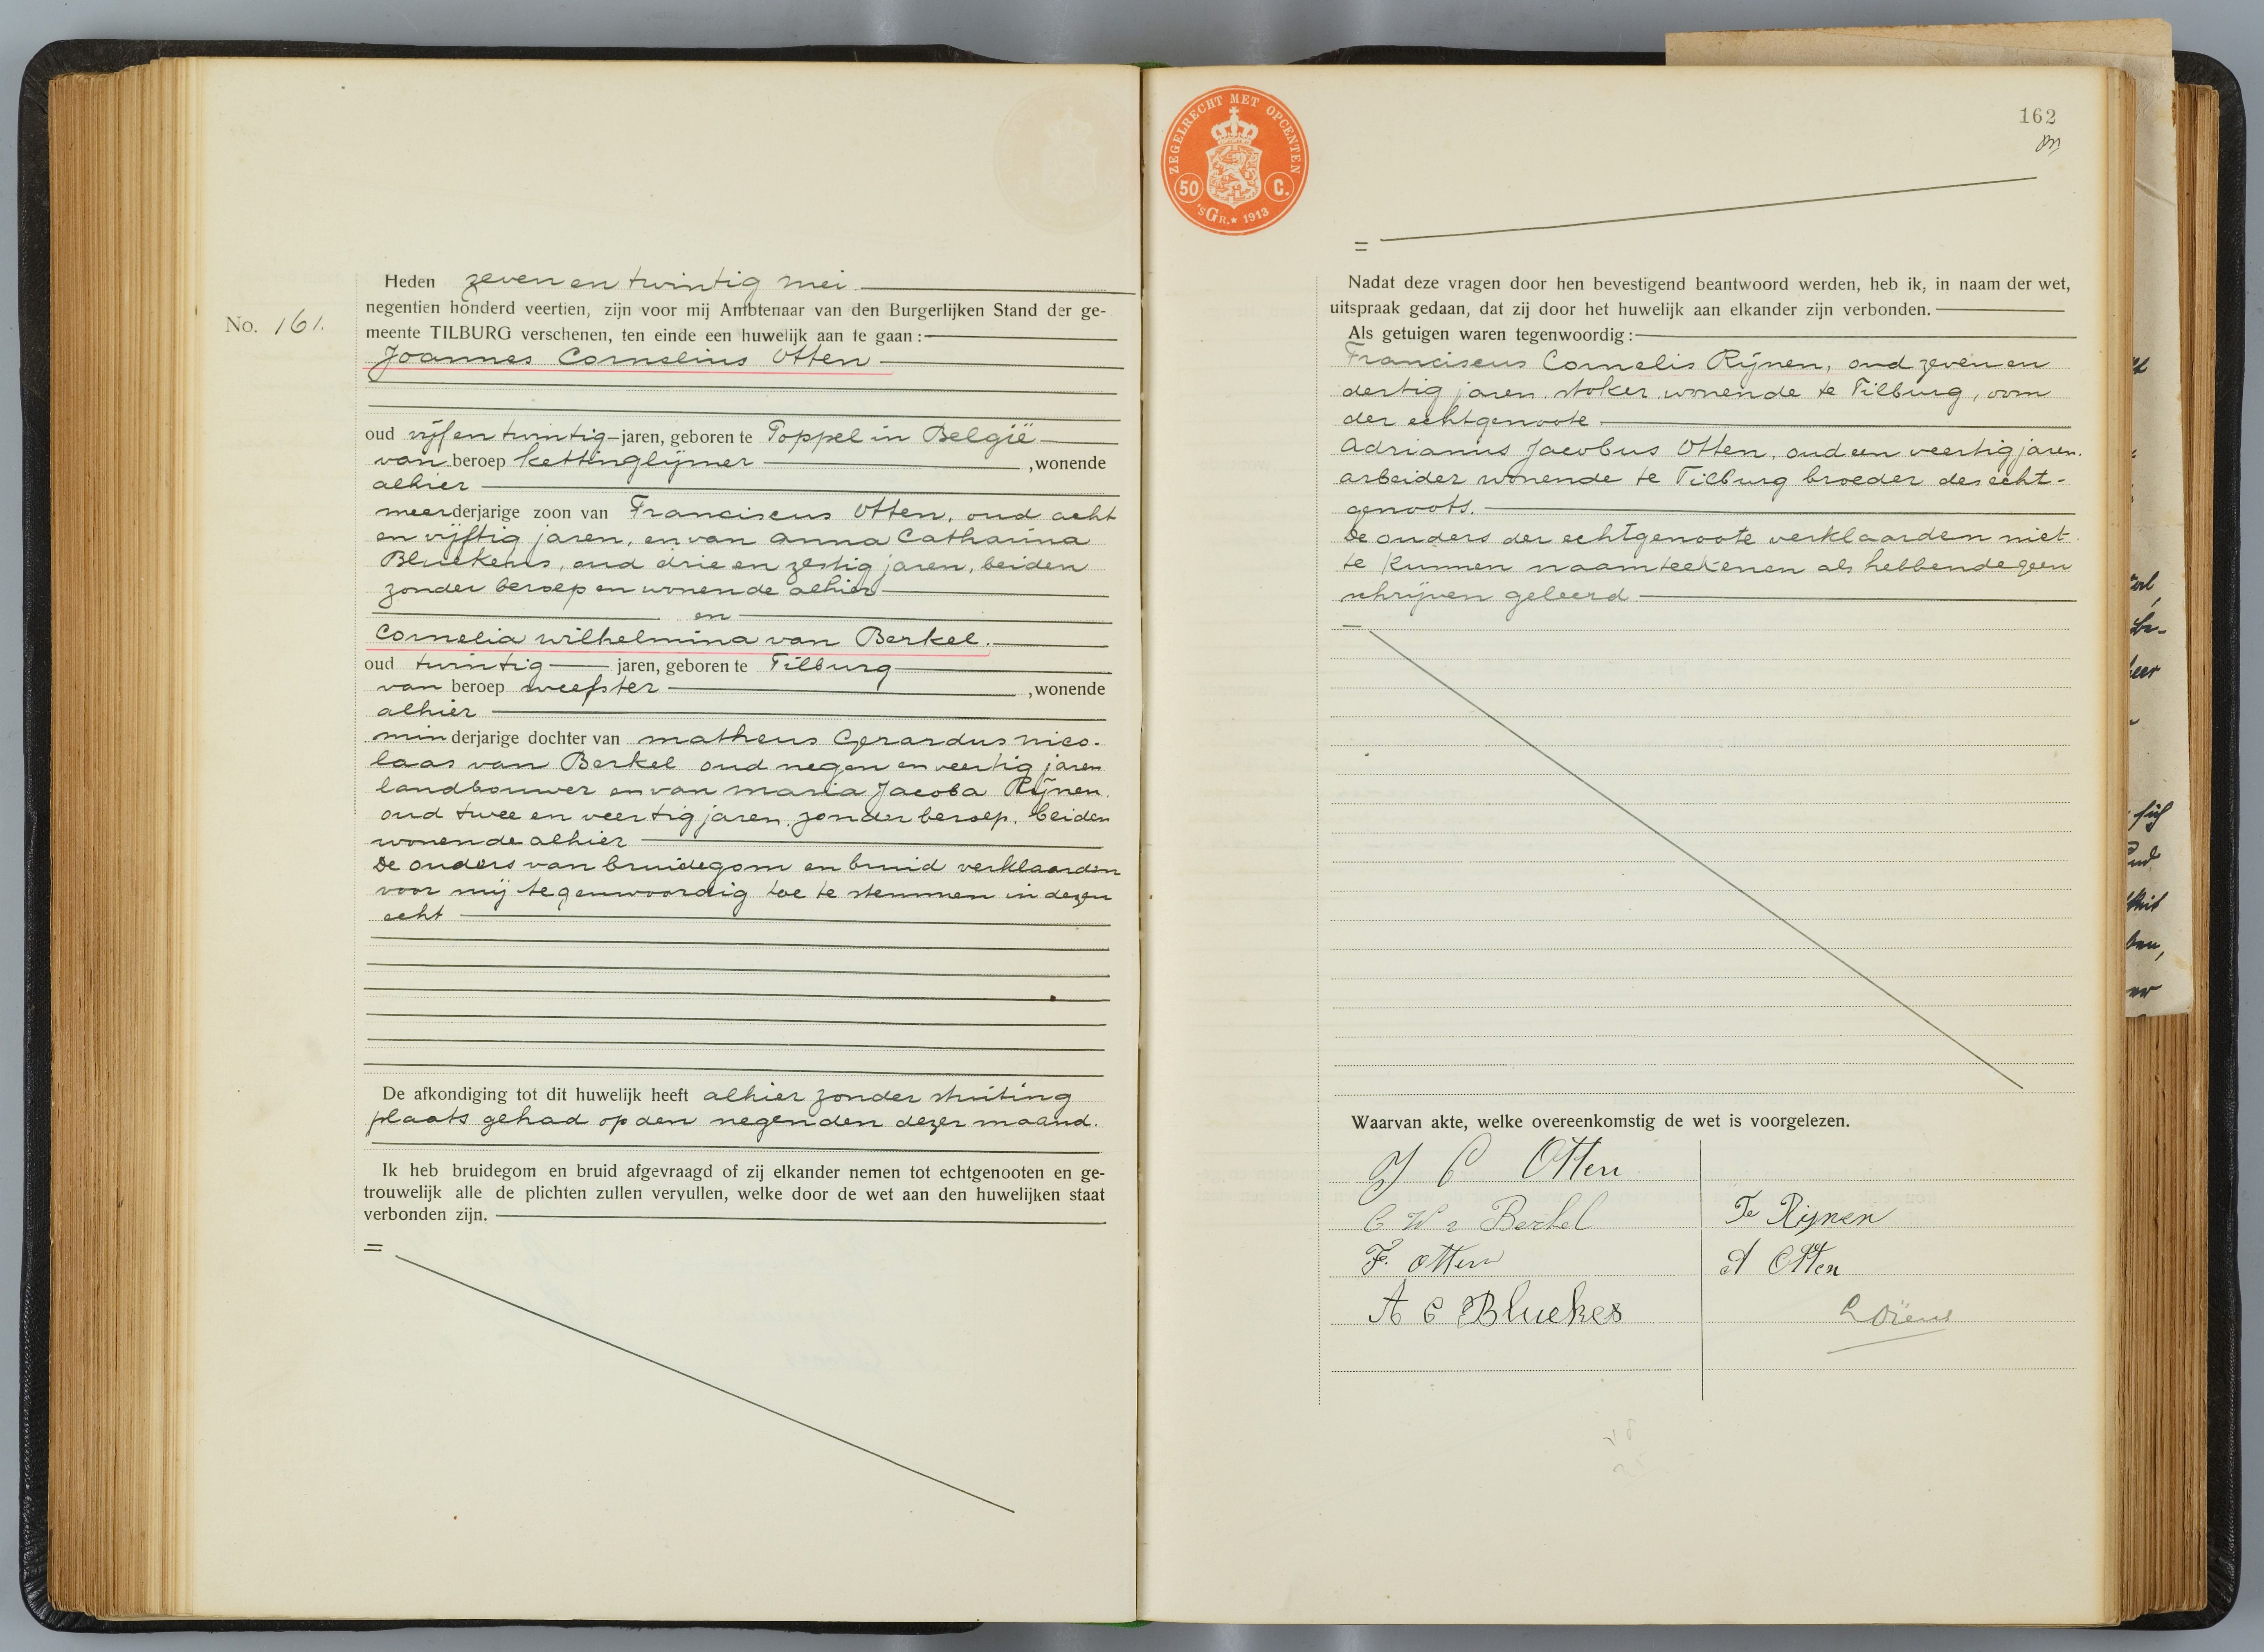 Heden zeven en twintig mei
negentien honderd veertien, zijn voor mij Ambtenaar van den Burgerlijken Stand der ge-
No. 161.
meente TILBURG verschenen, ten einde een huwelijk aan te gaan:
Joannes Cornelius Otten
oud vijf en twintig jaren, geboren te Poppel in België
van beroep kettinglijmer , wonende
alhier
meerderjarige zoon van Franciscus Otten, oud acht
en vijftig jaren, en van Anna Catharina
Bluekens, oud drie en zestig jaren, beiden
zonder beroep en wonende alhier
en
Cornelia Wilhelmina van Berkel.
oud twintig jaren, geboren te Tilburg
van beroep weefster , wonende
alhier
minderjarige dochter van Matheus Gerardus Nico-
laas van Berkel oud negen en veertig jaren
landbouwer en van Maria Jacoba Rijnen.
oud twee en veertig jaren, zonder beroep, beiden
wonende alhier
De ouders van bruidegom en bruid verklaarden
voor mij tegenwoordig toe te stemmen in dezen
echt
De afkondiging tot dit huwelijk heeft alhier zonder stuiting
plaats gehad op den negenden dezer maand.
Ik heb bruidegom en bruid afgevraagd of zij elkander nemen tot echtgenooten en ge-
trouwelijk alle de plichten zullen vervullen, welke door de wet aan den huwelijken staat
verbonden zijn.
=
ZEGELRECHT MET OPCENTEN
50 C.
'sGR.* 1913
162
=
Nadat deze vragen door hen bevestigend beantwoord werden, heb ik, in naam der wet,
uitspraak gedaan, dat zij door het huwelijk aan elkander zijn verbonden.
Als getuigen waren tegenwoordig:
Franciscus Cornelis Rijnen, oud zeven en
dertig jaren, stoker wonende te Tilburg, oom
der echtgenoote
Adrianus Jacobus Otten, oud een veertig jaren.
arbeider wonende te Tilburg broeder des echt-
genoots.
De ouders der echtgenoote verklaarden niet
te kunnen naamteekenen als hebbende geen
schrijven geleerd
Waarvan akte, welke overeenkomstig de wet is voorgelezen.
J C Otten
C W v Berkel
Fr Rijnen
F. Otten
A Otten
A C Bluekes